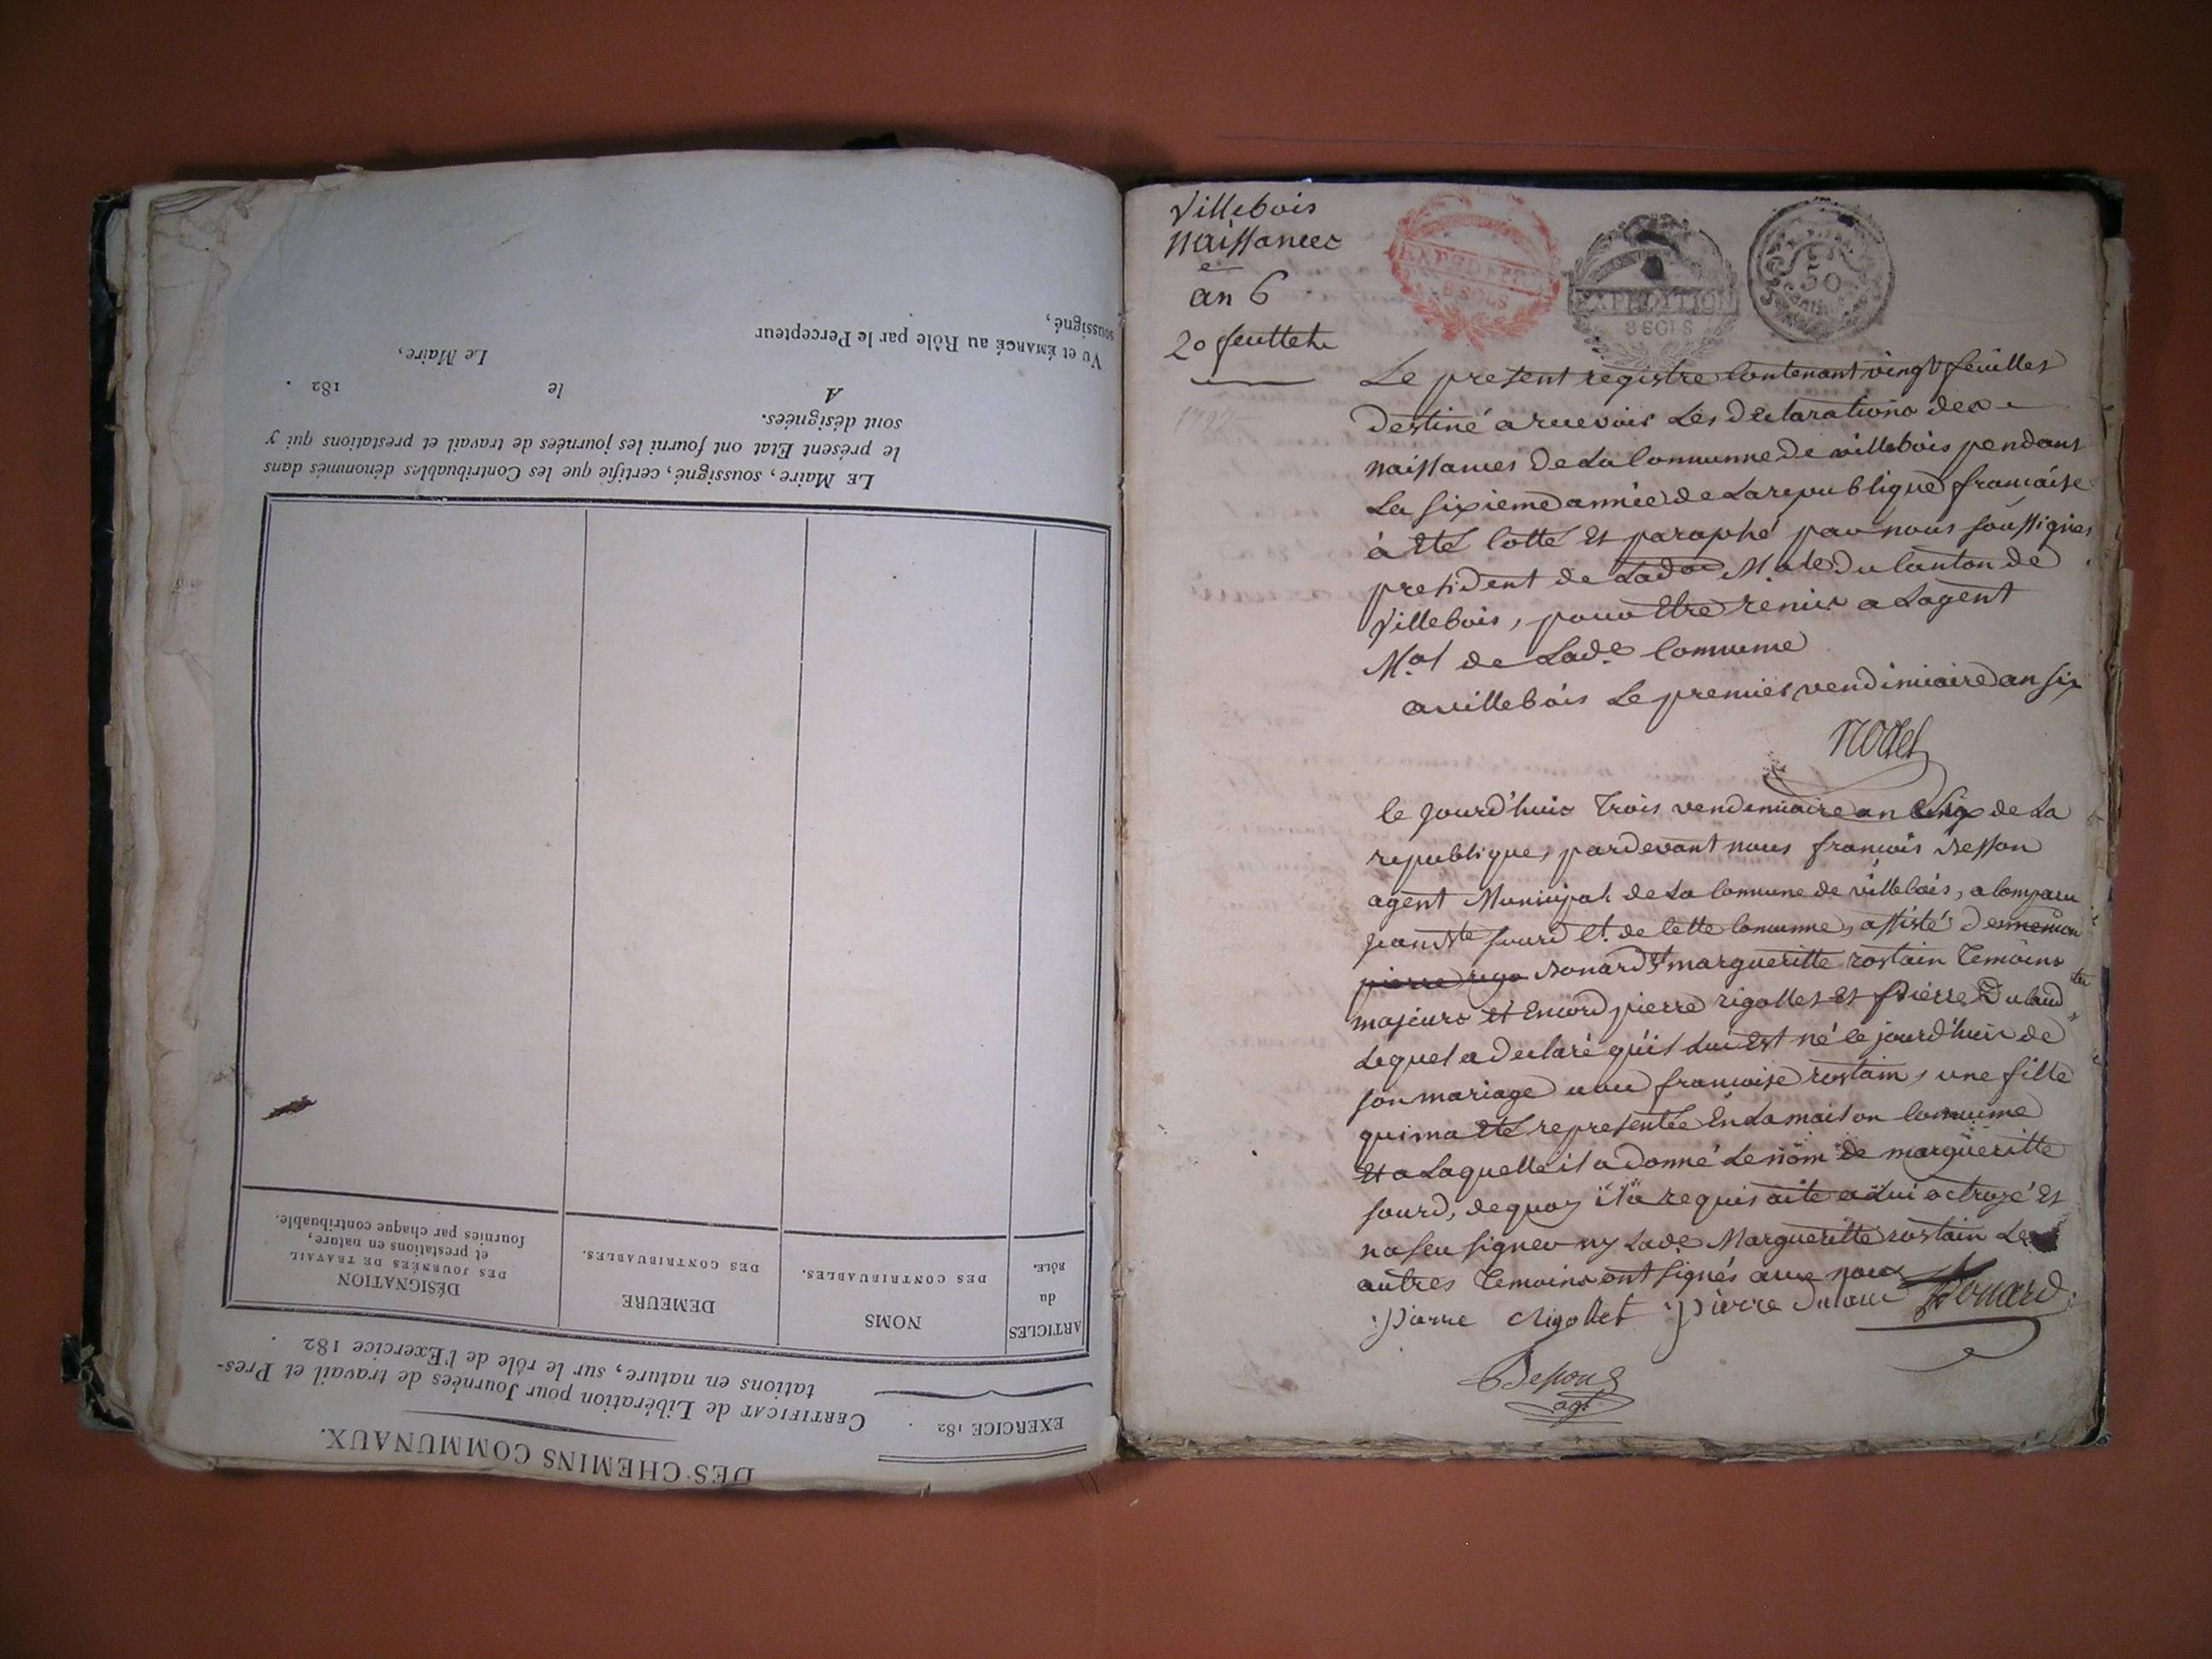 DES CHEMINS COMMUNAUX.
EXERCICE 182 .
CERTIFICAT de Libération pour Journées de travail et Pres-
tations en nature, sur le rôle de l'Exercice 182 .
ARTICLES
du
RÔLE.
NOMS
DES CONTRIBUABLES.
DEMEURE
DES CONTRIBUABLES.
DÉSIGNATION
DES JOURNÉES DE TRAVAIL
et prestations en nature,
fournies par chaque contribuable.
LE Maire, soussigné, certifie que les Contribuables dénommés dans
le présent Etat ont fourni les journées de travail et prestations qui y
sont désignées.
A le 182 .
VU et ÉMARGÉ au Rôle par le Percepteur
soussigné,
Le Maire,
Villebois
Naissances
an 6
20 feuttets
1797
EXPEDITION
8 SOLS
EXPEDITION
8 SOLS
50
Le present registre Contenant vingt feuilles
Destiné a recevoir Les Declarations des
naissances De La Commune De villebois pendant
La sixieme année de La republique francaise
à Eté Cotté Et paraphé par nous soussignés
president de Lad.on M.ale Du Canton de
Villebois, pour Etre remis a Lagent
M.al de Lad.e Commune
a villebois Le premier vendimiaire an six
Nodet
Ce jourd'huis Trois vendemiaire an Six de La
republique, pardevant nous francois Besson
agent Municipal de La Comune de villebois, a Comparu
Jean B.te sourd C.t de Cette Commune, assisté De
Bonard Et margueritte rostain Temoins
majeurs Et Encord pierre rigollet Et pierre Dulaud
Lequel a Declaré qu'il Lui Est né Ce jourd'huis de
son mariage avec francoise rostain, une fille
qui m'a Eté representée En La maison Commune
Et a Laquelle il a Donné Le nom de margueritte
sourd, de quoy il a requis acte a Lui octroyé Et
na seu signer ny Lad.e Margueritte rostain Les
autres Temoins ont signés avec nous
pierre Rigollet pierre dulaud Bonard
Besson
agt